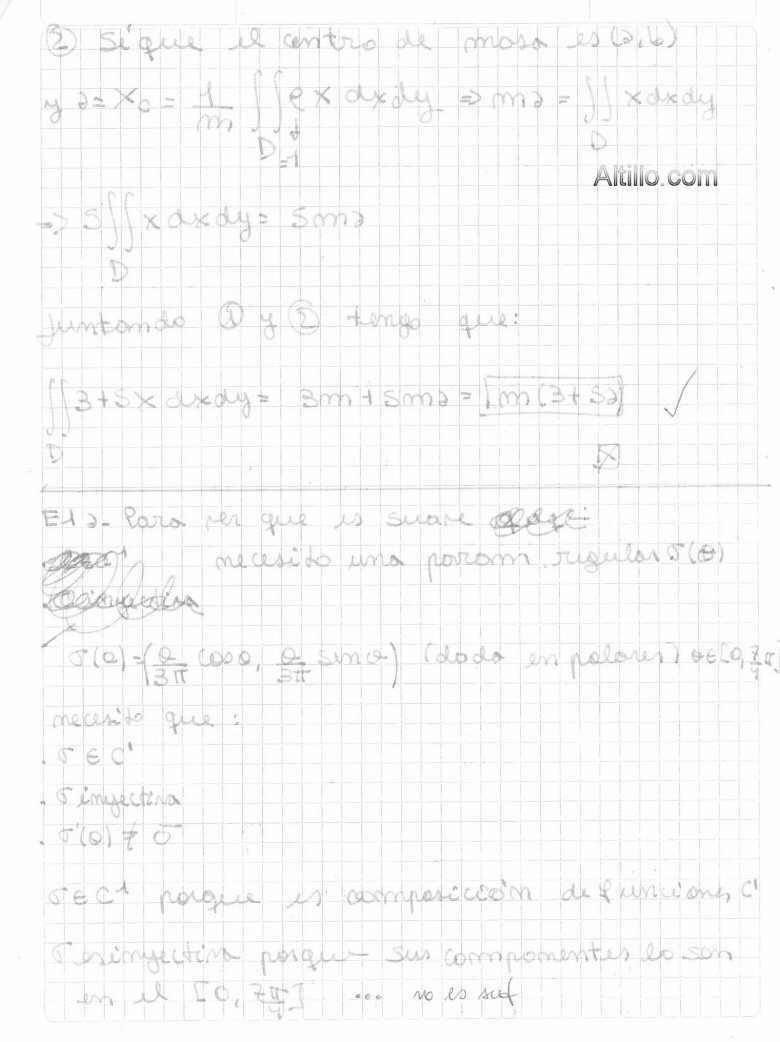 ② Sé que el centro de masa es (a,b)
y a = Xc = 1/m ∬D ρ x dxdy ⇒ ma = ∬D x dxdy
=1
Altillo.com
⇒ 5∬D x dxdy = 5ma
Juntando ① y ② tengo que:
∬D 3+5x dxdy = 3m + 5ma = m(3+5a) ✓
E1 a- Para ver que es suave
necesito una param. regular σ(θ)
σ(θ) = (θ/3π cosθ, θ/3π sinθ) (dada en polares) θ∈[0, 7/4π]
necesito que:
. σ ∈ C¹
. σ inyectiva
. σ'(θ) ≠ 0
σ∈C¹ porque es composición de funciones C¹
σ es inyectiva porque sus componentes lo son
en el [0, 7π/4] ... no es suf